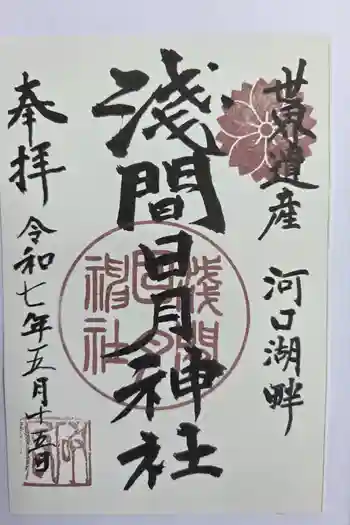 世界遺産 河口湖畔
淺間日月神社
淺間
日月
神社
奉拝
令和七年五月廿五日